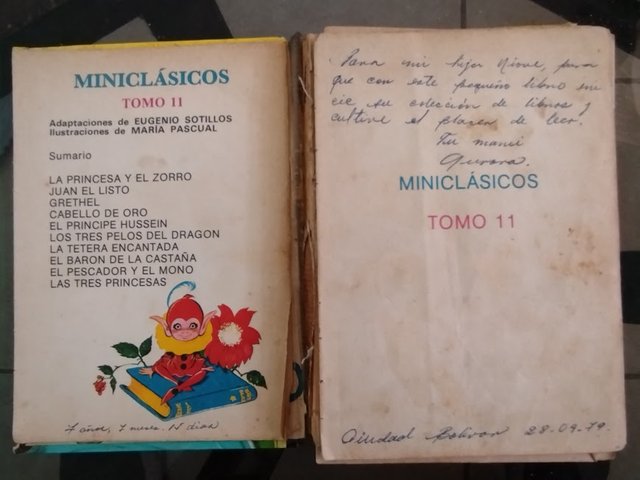 MINICLÁSICOS
TOMO 11
Adaptaciones de EUGENIO SOTILLOS
Ilustraciones de MARÍA PASCUAL
Sumario
LA PRINCESA Y EL ZORRO
JUAN EL LISTO
GRETHEL
CABELLO DE ORO
EL PRINCIPE HUSSEIN
LOS TRES PELOS DEL DRAGON
LA TETERA ENCANTADA
EL BARON DE LA CASTAÑA
EL PESCADOR Y EL MONO
LAS TRES PRINCESAS
7 años, 7 meses, días
Para mi hija para
que con este pequeño libro ini
cie su colección de libros y
cultive el placer de leer.
Tu mami
MINICLÁSICOS
TOMO 11
Ciudad Bolívar 28-09-79